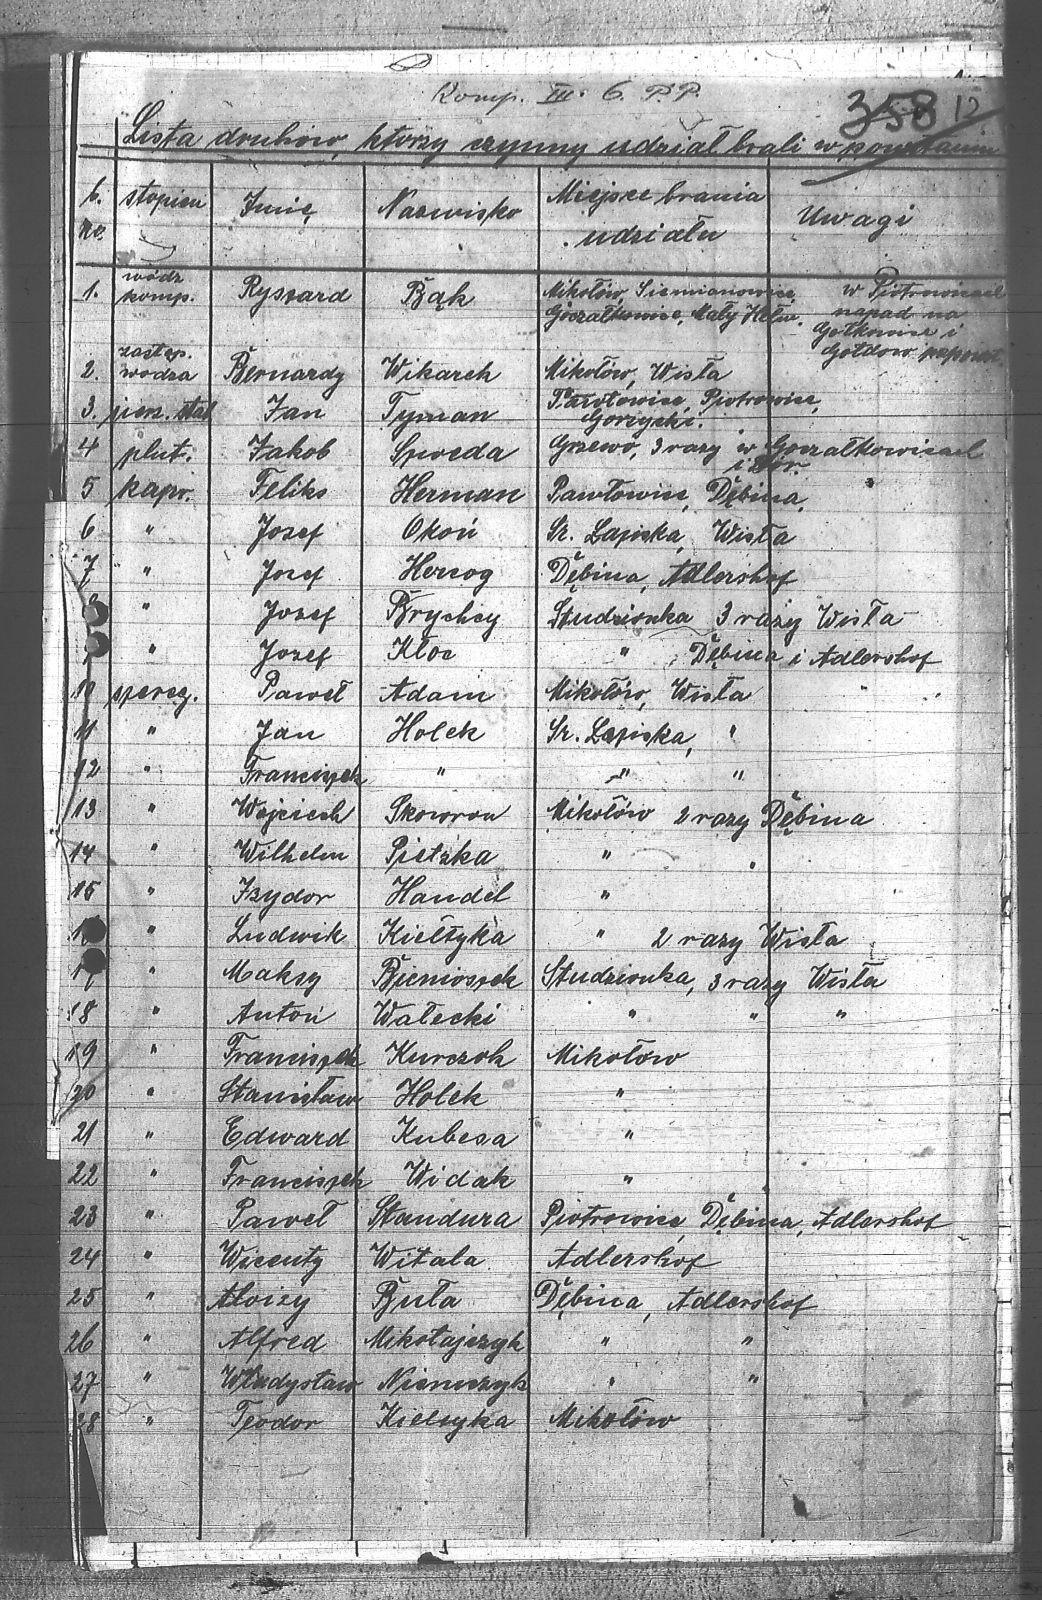 Komp. III. 6. P.P.
358 12
Lista druhów, którzy czynny udział brali w powstaniu
L. no. stopień Imię Nazwisko Miejsce brania udziału Uwagi
1. wódz komp. Ryszard Bąk Mikołów, Siemianowice, Goczałkowice, Mały w Piotrowicach napad na Gołkowice i
2. zastęp. wodza Bernardy Wikarek Mikołów, Wisła
3. pierw. Jan Tyman Pawłowice, Piotrowice, Gorzycki.
4 plut. Jakob Szweda 3 razy w Goczałkowicach i
5 kapr. Feliks Herman Pawłowice, Dębina,
6 " Jozef Okoń Sr. Łaziska, Wisła
7 " Jozef Herzog Dębina, Adlershof
" Jozef Brychcy Studzionka 3 razy Wisła
" Jozef Kłoc " , Dębina i Adlershof
10 szereg. Paweł Adam Mikołów, Wisła
11 " Jan Holek Sr. Łaziska, "
12 " Franciszek " " "
13 " Wojciech Skowron Mikołów 2 razy Dębina
14 " Wilhelm Pietzka " "
15 " Izydor Handel "
" Ludwik Kiełtyka " 2 razy Wisła
17 " Maksy Bieniossek Studzionka, 3 razy Wisła
18 " Anton Wałecki " " "
19 " Franciszek Kurczoh Mikołów
20 " Stanisław Holek "
21 " Edward Kubesa "
22 " Franciszek Widak "
23 " Paweł Standura Piotrowice, Dębina, Adlershof
24 " Wicenty Witala Adlershof
25 " Aloizy Buła Dębina, Adlershof
26 " Alfred Mikołajczyk " "
27 " Władysław Niemczyk " "
28 " Teodor Kieltyka Mikołów